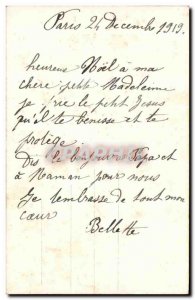 Paris 24 Decembre 1919.
heureux Noël à ma
chère petite Madeleine
je prie le petit Jesus
qu'il te benisse et te
protège.
Dis le bonjour Papa et
à Maman pour nous
Je t'embrasse de tout mon
cœur
Bellette